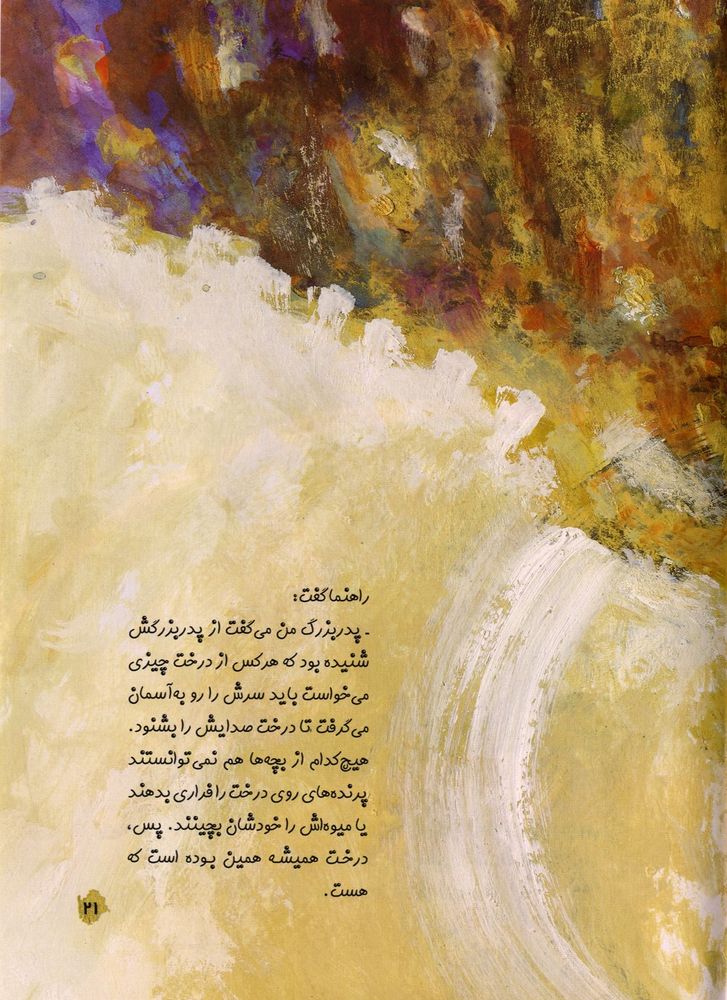 راهنما گفت:
ـ پدربزرگ من می‌گفت از پدربزرگش
شنیده بود که هرکس از درخت چیزی
می‌خواست باید سرش را رو به‌آسمان
می‌گرفت تا درخت صدایش را بشنود.
هیچ‌کدام از بچه‌ها هم نمی‌توانستند
پرنده‌های روی درخت را فراری بدهند
یا میوه‌اش را خودشان بچینند. پس،
درخت همیشه همین بوده است که
هست.
۲۱